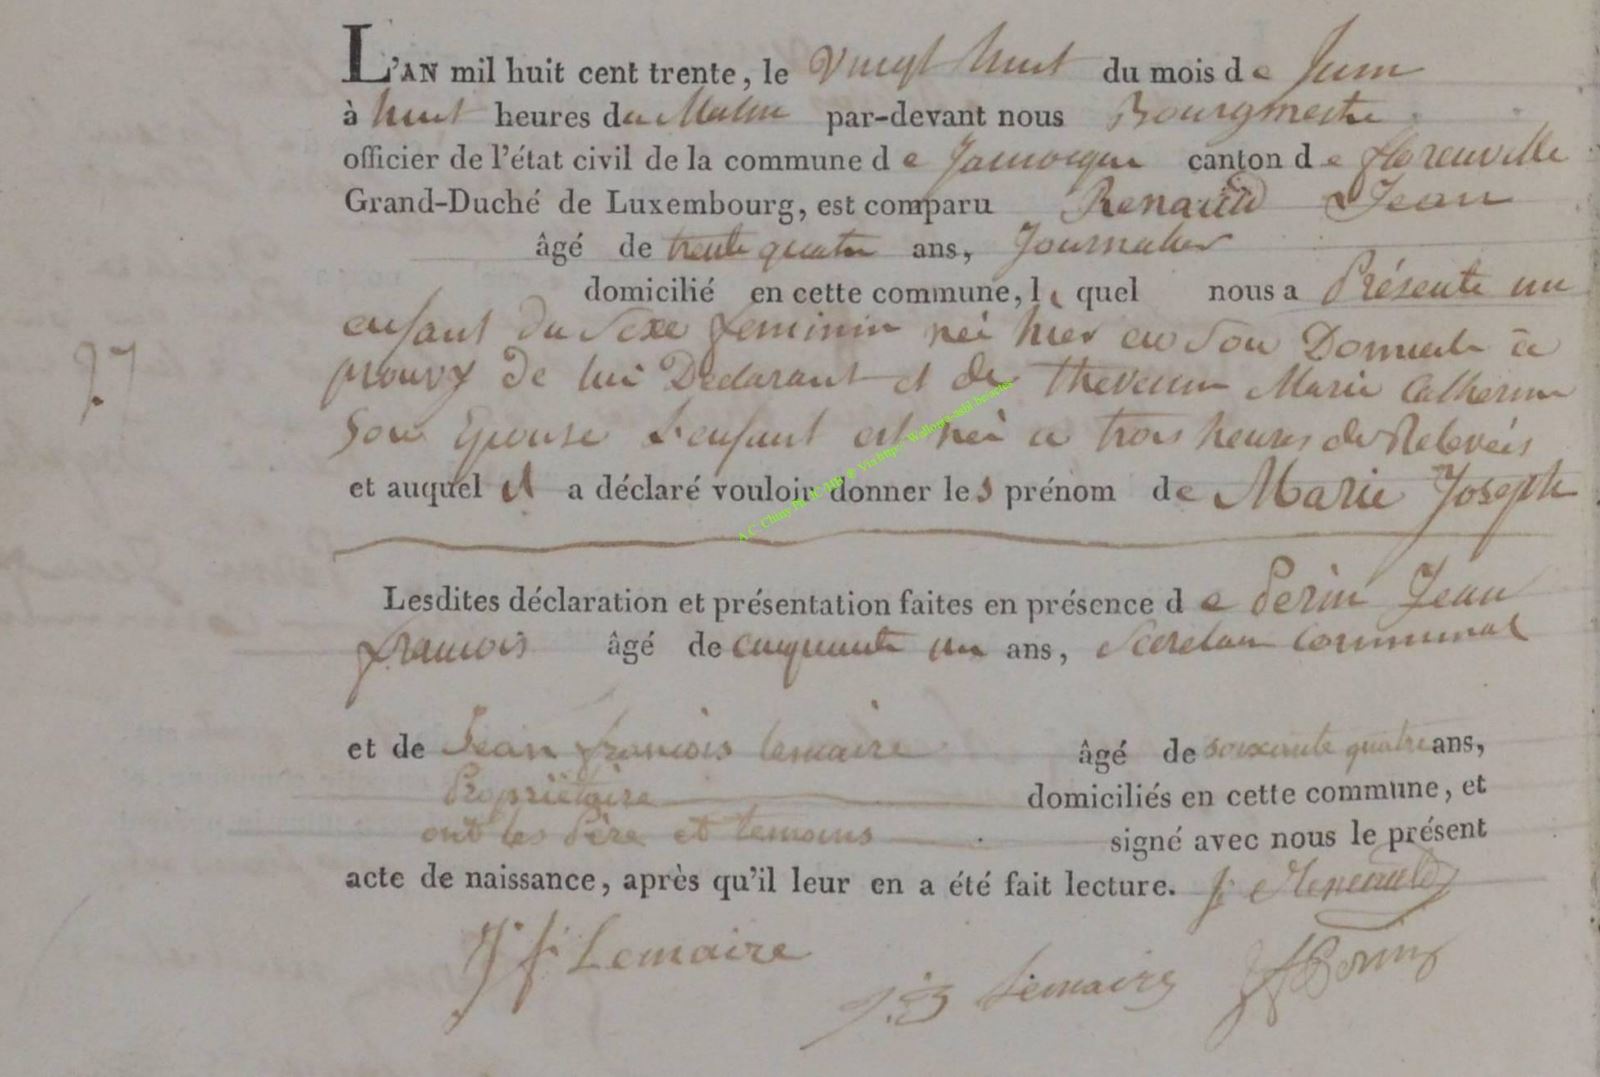 L'AN mil huit cent trente, le vingt huit du mois de Juin
à huit heures du Matin par-devant nous Bourgmestre
officier de l'état civil de la commune de Jamoigne canton de florenville
Grand-Duché de Luxembourg, est comparu Renauld Jean
âgé de trente quatre ans, Journalier
domicilié en cette commune, le quel nous a Présenté un
enfant du Sexe feminin néé hier en Son Domicile à
prouvy de lui Déclarant et de thevenin Marie Catherine
Son Epouse L'enfant est néé a trois heures de Relevéés
27
et auquel il a déclaré vouloir donner les prénom de Marie Joseph
A.C. Chiny Ph. JC MB @ Via http:// Wallonia-asbl.be/actes
Lesdites déclaration et présentation faites en présence de Perin Jean
francois âgé de cinquante un ans, Secretaire Communal
et de Jean francois lemaire âgé de soixante quatre ans,
Propriétaire domiciliés en cette commune, et
ont les Père et temoins signé avec nous le présent
acte de naissance, après qu'il leur en a été fait lecture. J. Renauld
J f Lemaire
J: B Lemaire JfPerin